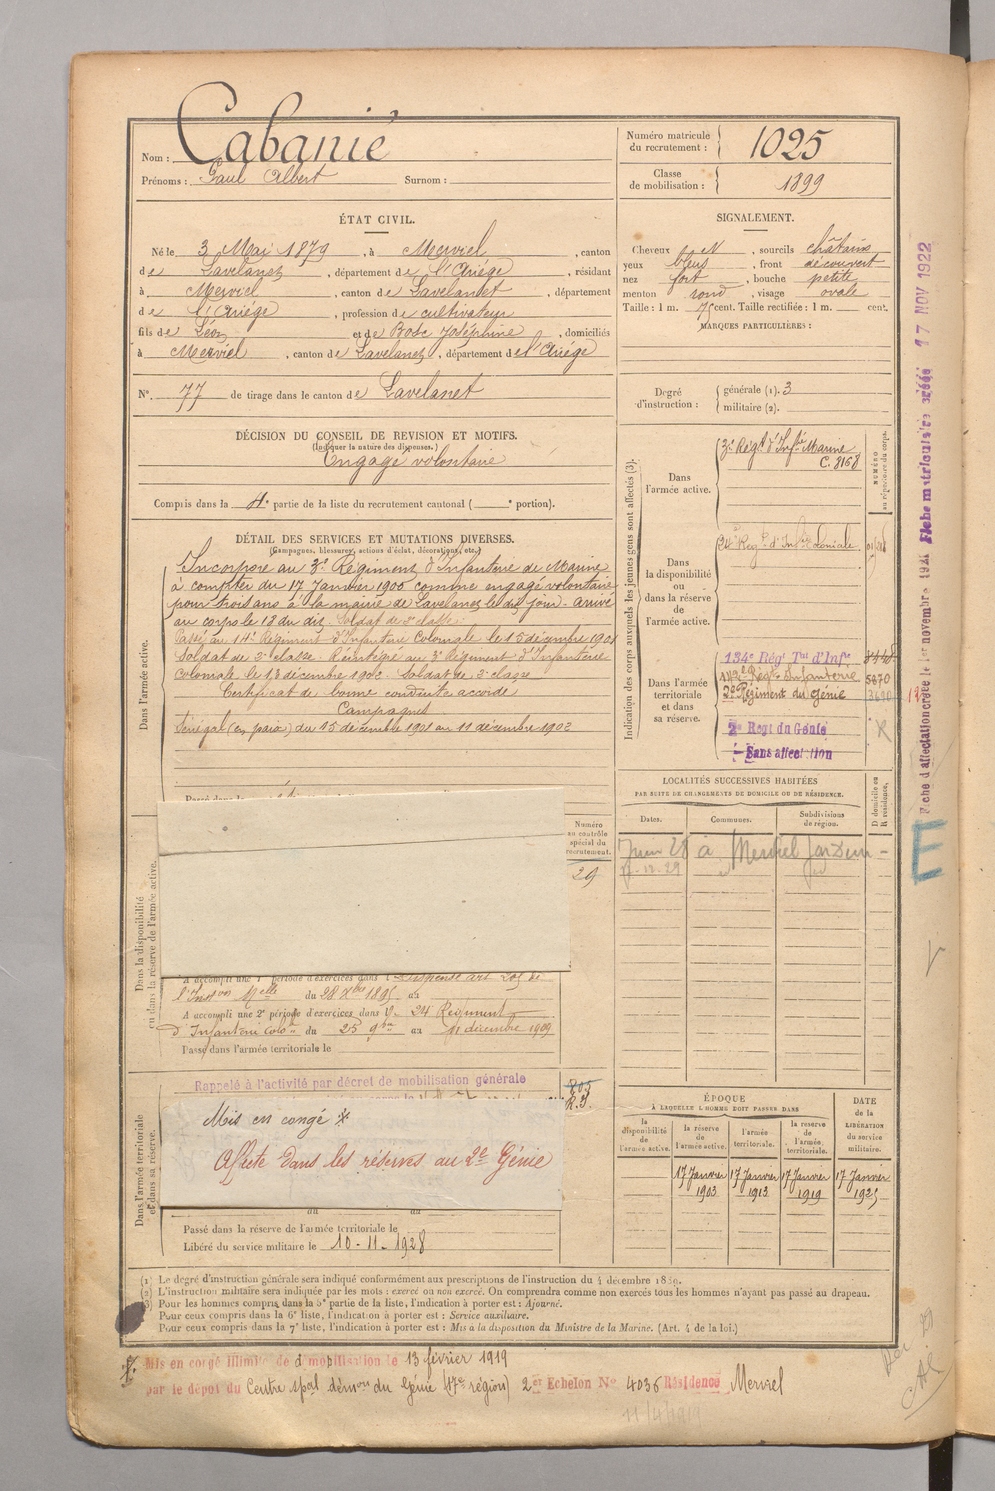 Nom : Cabanié
Prénoms : Paul Albert Surnom :
Numéro matricule du recrutement : 1025
Classe de mobilisation : 1899
ÉTAT CIVIL.
Né le 3 Mai 1879, à Merviel, canton
de Lavelanet, département de l'Ariége, résidant
à Merviel, canton de Lavelanet, département
de l'Ariége, profession de cultivateur
fils de Léon et de Bosc Joséphine, domiciliés
à Merviel, canton de Lavelanet, département de l'Ariége
N°. 77 de tirage dans le canton de Lavelanet
SIGNALEMENT.
Cheveux N, sourcils châtains
yeux bleus, front découvert
nez fort, bouche petite
menton rond, visage ovale
Taille : 1 m. 75 cent. Taille rectifiée : 1 m. cent.
MARQUES PARTICULIÈRES :
Degré d'instruction : générale (1). 3
militaire (2).
DÉCISION DU CONSEIL DE REVISION ET MOTIFS.
(Indiquer la nature des dispenses.)
Engagé volontaire
Compris dans la 4e partie de la liste du recrutement cantonal ( e portion).
DÉTAIL DES SERVICES ET MUTATIONS DIVERSES.
(Campagnes, blessures, actions d'éclat, décorations, etc.)
Dans l'armée active.
Incorporé au 3e Régiment d'Infanterie de Marine
à compter du 17 Janvier 1900 comme engagé volontaire
pour trois ans à la mairie de Lavelanet le dit jour - arrivé
au corps le 18 du dit. Soldat de 2e classe.
Passé au 14e Régiment d'Infanterie Coloniale le 15 décembre 1901
Soldat de 2e classe. Réintégré au 3e Régiment d'Infanterie
Coloniale le 13 décembre 1902. Soldat de 2e classe
Certificat de bonne conduite accordé
Campagnes
Sénégal (en paix) du 15 décembre 1901 au 11 décembre 1902
Indication des corps auxquels les jeunes gens sont affectés (3).
NUMÉRO au répertoire du corps.
Dans l'armée active.
3e Régt d'Infie Marine
C. 8168
Dans la disponibilité ou dans la réserve de l'armée active.
24e Régt d'Infie Coloniale
Dans l'armée territoriale et dans sa réserve.
134e Régt Tal d'Infie
142e Régt Infanterie 5870
2e Régiment du génie
2e Regt du Genie
Sans affectation
LOCALITÉS SUCCESSIVES HABITÉES
PAR SUITE DE CHANGEMENTS DE DOMICILE OU DE RÉSIDENCE.
Dates. Communes. Subdivisions de région. D domicile ou R résidence.
7 juin 28 à Merviel
17-12-29
Dans la disponibilité ou dans la réserve de l'armée active.
Numéro au contrôle spécial du recrutement.
29
A accompli une 1e période d'exercices dans l Dispensé art 205 de
l'Inston Melle du 28 Xbre 1895 au
A accompli une 2e période d'exercices dans le 24e Régiment
d'Infanterie Colole du 25 9bre au 11 décembre 1909
Passé dans l'armée territoriale le
Dans l'armée territoriale et dans sa réserve.
Rappelé à l'activité par décret de mobilisation générale
805
R.T.
Mis en congé *
Affecté dans les réserves au 2e Génie
du au
Passé dans la réserve de l'armée territoriale le
Libéré du service militaire le 10-11-1928
ÉPOQUE
A LAQUELLE L'HOMME DOIT PASSER DANS
DATE de la LIBÉRATION du service militaire.
la disponibilité de l'armée active. la réserve de l'armée active. l'armée territoriale. la réserve de l'armée territoriale.
17 Janvier 1903 17 Janvier 1913 17 Janvier 1919 17 Janvier 1925
(1) Le degré d'instruction générale sera indiqué conformément aux prescriptions de l'instruction du 4 décembre 1889.
(2) L'instruction militaire sera indiquée par les mots : exercé ou non exercé. On comprendra comme non exercés tous les hommes n'ayant pas passé au drapeau.
(3) Pour les hommes compris dans la 5e partie de la liste, l'indication à porter est : Ajourné.
Pour ceux compris dans la 6e liste, l'indication à porter est : Service auxiliaire.
Pour ceux compris dans la 7e liste, l'indication à porter est : Mis à la disposition du Ministre de la Marine. (Art. 4 de la loi.)
Mis en congé illimité de démobilisation le 13 février 1919
par le dépôt du Centre spal démon du Génie (17e région) 2er Echelon N° 4036 Résidence Merviel
11/4/1919
Fiche d'affectation créée le 1er novembre 1921 Fiche matriculaire créée 17 NOV 1922
E